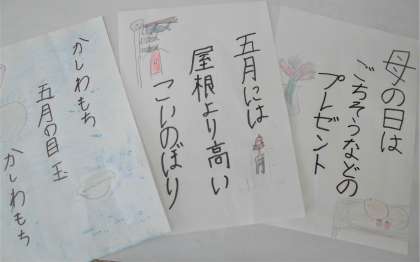 母の日は
ごちそうなどの
プレゼント
五月には
屋根より高い
こいのぼり
かしわもち
五月の目玉
かしわもち